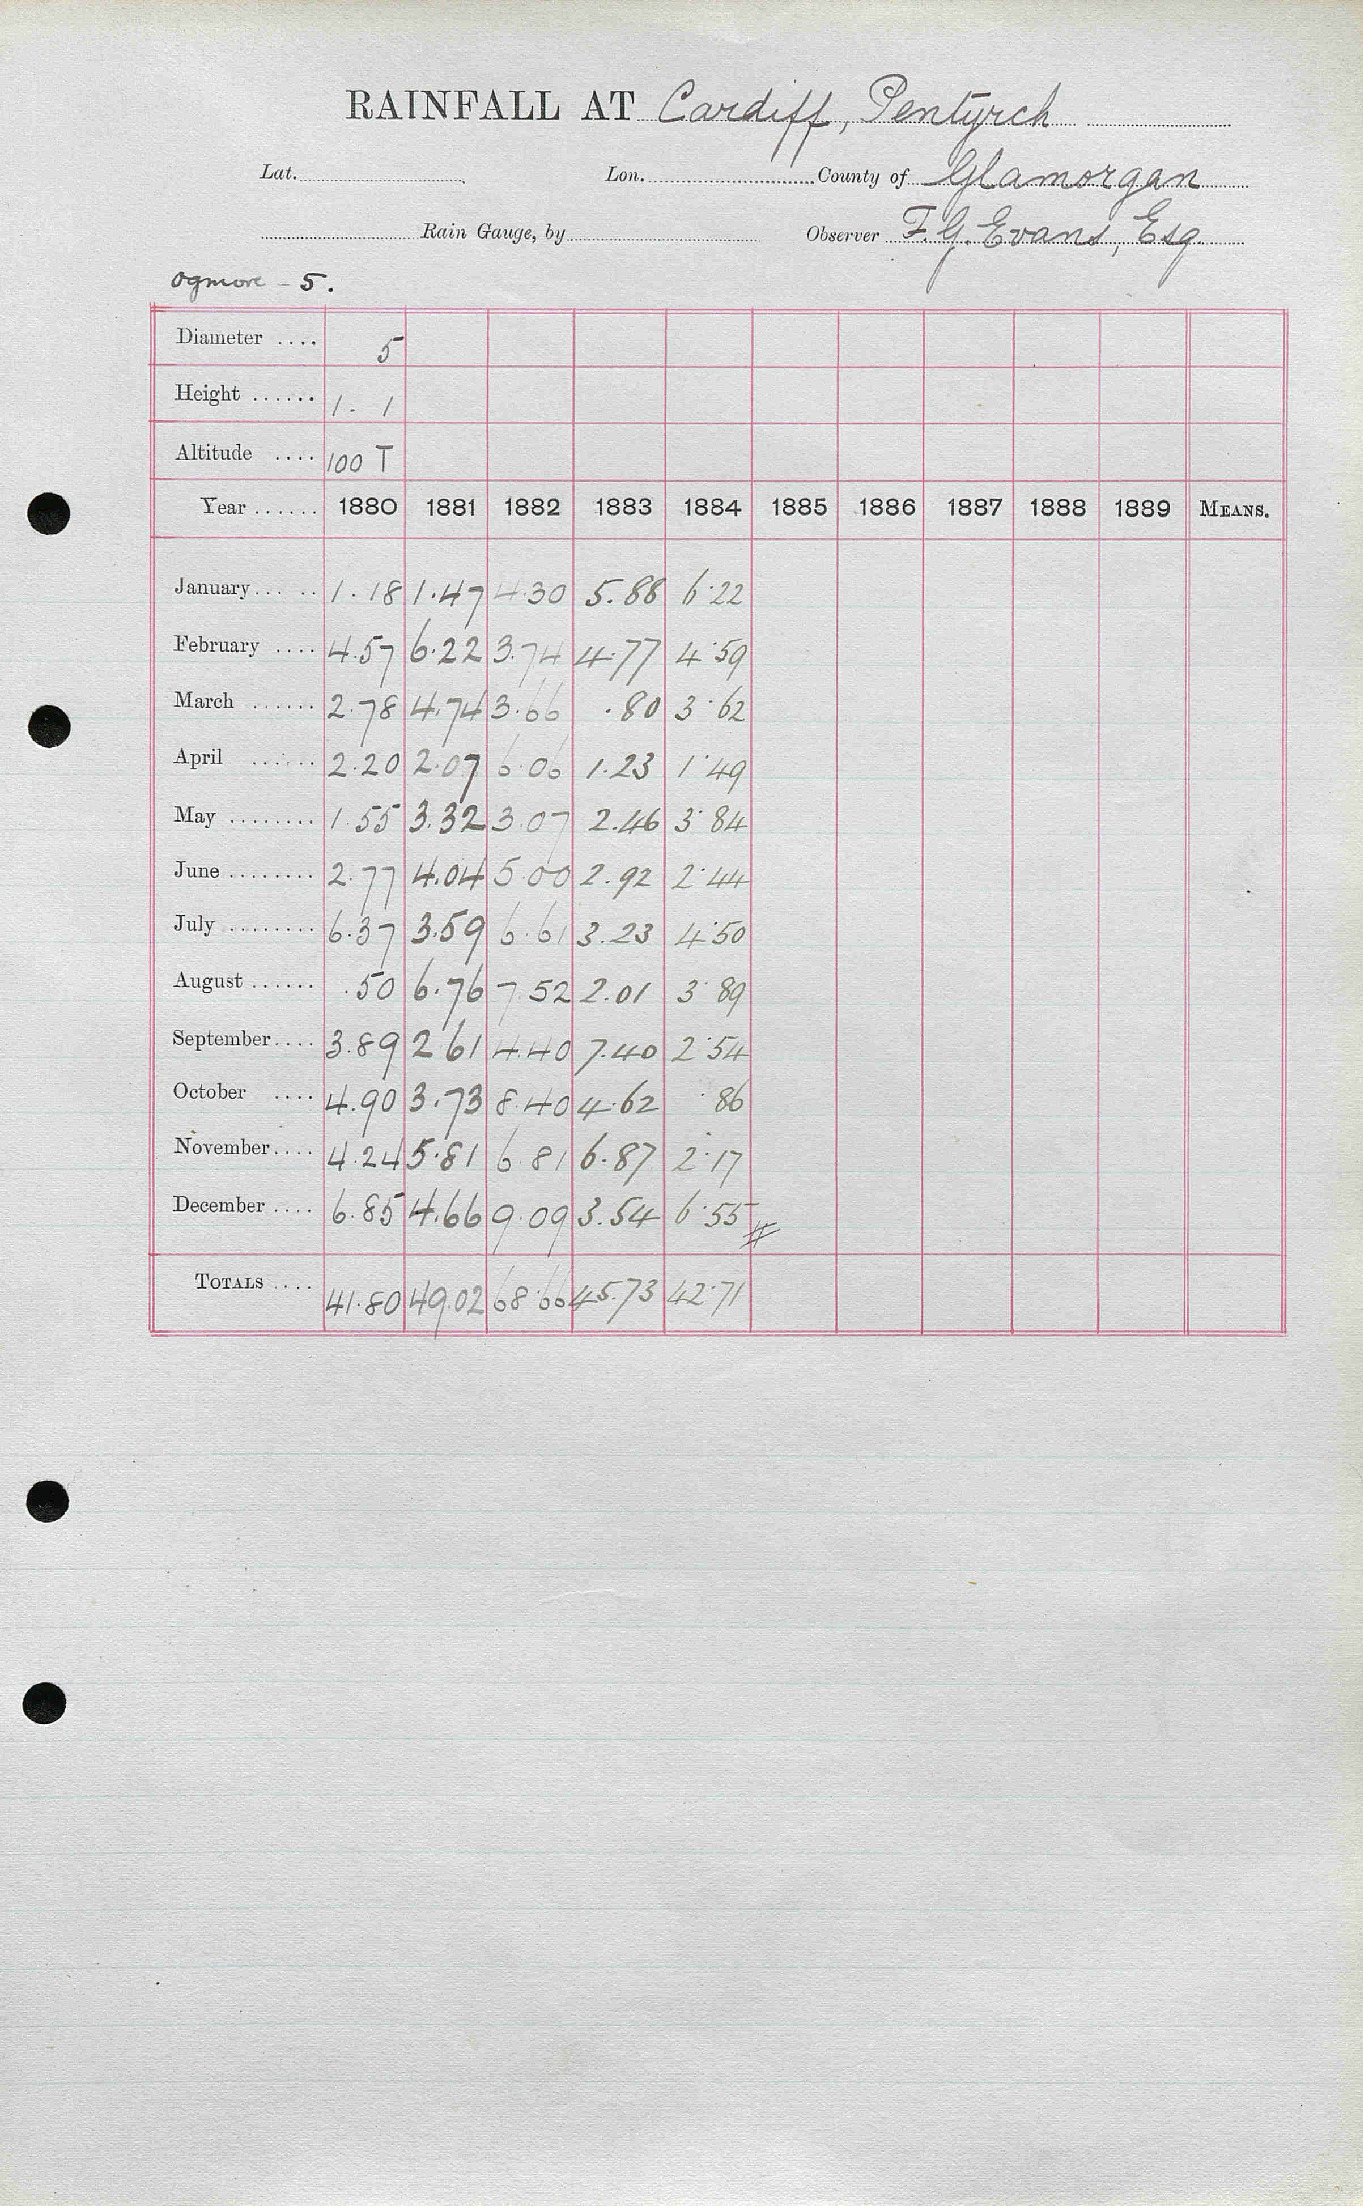 RAINFALL AT Cardiff, Pentyrch
Lat. Lon. County of Glamorgan
Rain Gauge, by Observer F.G. Evans, Esq.
Ogmore - 5.
Diameter .... 5
Height ...... 1. 1
Altitude .... 100 T
Year ...... 1880 1881 1882 1883 1884 1885 1886 1887 1888 1889 MEANS.
January ..... 1.18 1.47 4.30 5.88 6.22
February .... 4.57 6.22 3.74 4.77 4.59
March ...... 2.78 4.74 3.66 .80 3.62
April ...... 2.20 2.07 6.06 1.23 1.49
May ........ 1.55 3.32 3.07 2.46 3.84
June ........ 2.77 4.04 5.00 2.92 2.44
July ........ 6.37 3.59 6.61 3.23 4.50
August ...... .50 6.76 7.52 2.01 3.89
September .... 3.89 2.61 4.40 7.40 2.54
October .... 4.90 3.73 8.40 4.62 .86
November .... 4.24 5.81 6.81 6.87 2.17
December .... 6.85 4.66 9.09 3.54 6.55
TOTALS .... 41.80 49.02 68.66 45.73 42.71